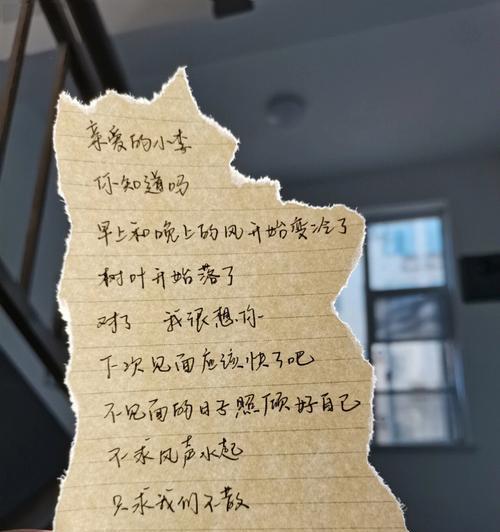 亲爱的小李
你知道吗
早上和晚上的风开始变冷了
树叶开始落了
对了 我很想你
下次见面应该快了吧
不见面的日子照顾好自己
不求风声水起
只求我们不散